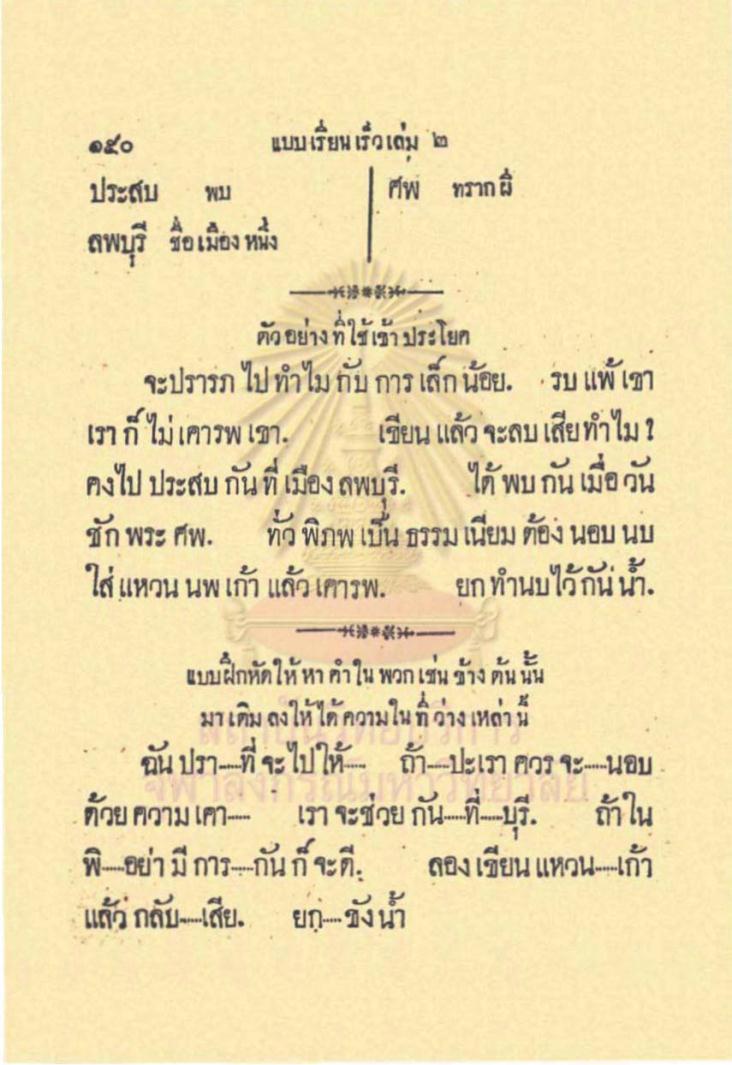 ๑๕๐ แบบเรียนเร็วเล่ม ๒
ประสบ พบ ศพ ทรากผี
ลพบุรี ชื่อเมืองหนึ่ง
ตัวอย่างที่ใช้เข้าประโยค
จะปรารภ ไป ทำไม กับ การ เล็ก น้อย. รบ แพ้ เขา
เรา ก็ ไม่ เคารพ เขา. เขียน แล้ว จะลบ เสียทำไม ?
คงไป ประสบ กัน ที่ เมือง ลพบุรี. ได้ พบ กัน เมื่อ วัน
ชัก พระ ศพ. ทั่ว พิภพ เป็น ธรรม เนียม ต้อง นอบ นบ
ใส่ แหวน นพ เก้า แล้ว เคารพ. ยก ทำนบ ไว้ กั้น น้ำ.
แบบฝึกหัดให้ หา คำใน พวก เช่น ข้าง ต้น นั้น
มา เติม ลงให้ ได้ ความใน ที่ ว่าง เหล่า นี้
ฉัน ปรา....ที่ จะไปให้.... ถ้า....ปะเรา ควร จะ....นอบ
ด้วย ความ เคา.... เรา จะช่วย กัน....ที่....บุรี. ถ้าใน
พิ....อย่า มี การ....กัน ก็ จะดี. ลอง เขียน แหวน....เก้า
แล้ว กลับ....เสีย. ยก....ขัง น้ำ
สถาบันวิทยบริการ
จุฬาลงกรณ์มหาวิทยาลัย